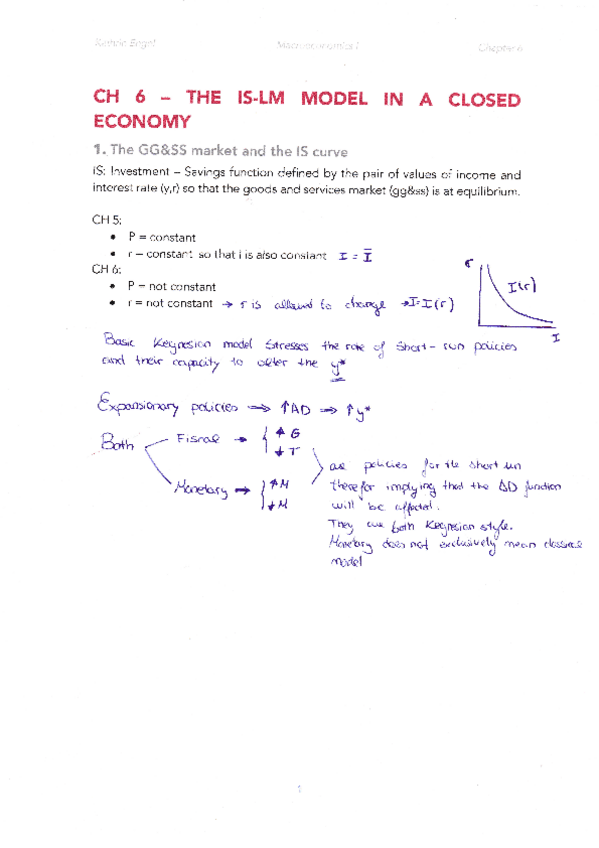 Kathrin Engel Macroeconomics I Chapter 6
CH 6 – THE IS-LM MODEL IN A CLOSED
ECONOMY
1. The GG&SS market and the IS curve
IS: Investment – Savings function defined by the pair of values of income and
interest rate (y,r) so that the goods and services market (gg&ss) is at equilibrium.
CH 5:
• P = constant
• r – constant so that i is also constant I = Ī
CH 6:
• P = not constant
• r = not constant → r is allowed to change → I = I(r)
r
I(r)
I
Basic Keynesian model stresses the role of short-run policies
and their capacity to alter the y*
Expansionary policies ⇒ ↑AD ⇒ ↑y*
Both
Fiscal → { ↑ G
↓ T
Monetary → { ↑M
↓M
are policies for the short run
therefor implying that the AD function
will be affected.
They are both Keynesian style.
Monetary does not exclusively mean classical
model
1